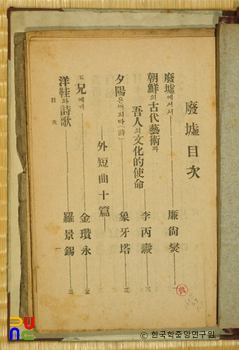 廢墟目次
廢墟에서서 廉尙燮
朝鮮의古代藝術과
吾人의文化的使命 李丙燾
夕陽은 (詩) 象牙塔
外短曲十篇
K兄에게 金瓚永
洋鞋와詩歌 羅景錫
目次
一
© 한국학중앙연구원